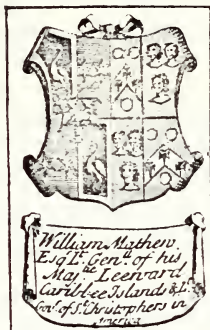 William Mathew,
Esqr. Lt. Genll. of his
Maj.tie Leeward
Caribbee Islands & Lt.
Gov. of St. Christophers in
America